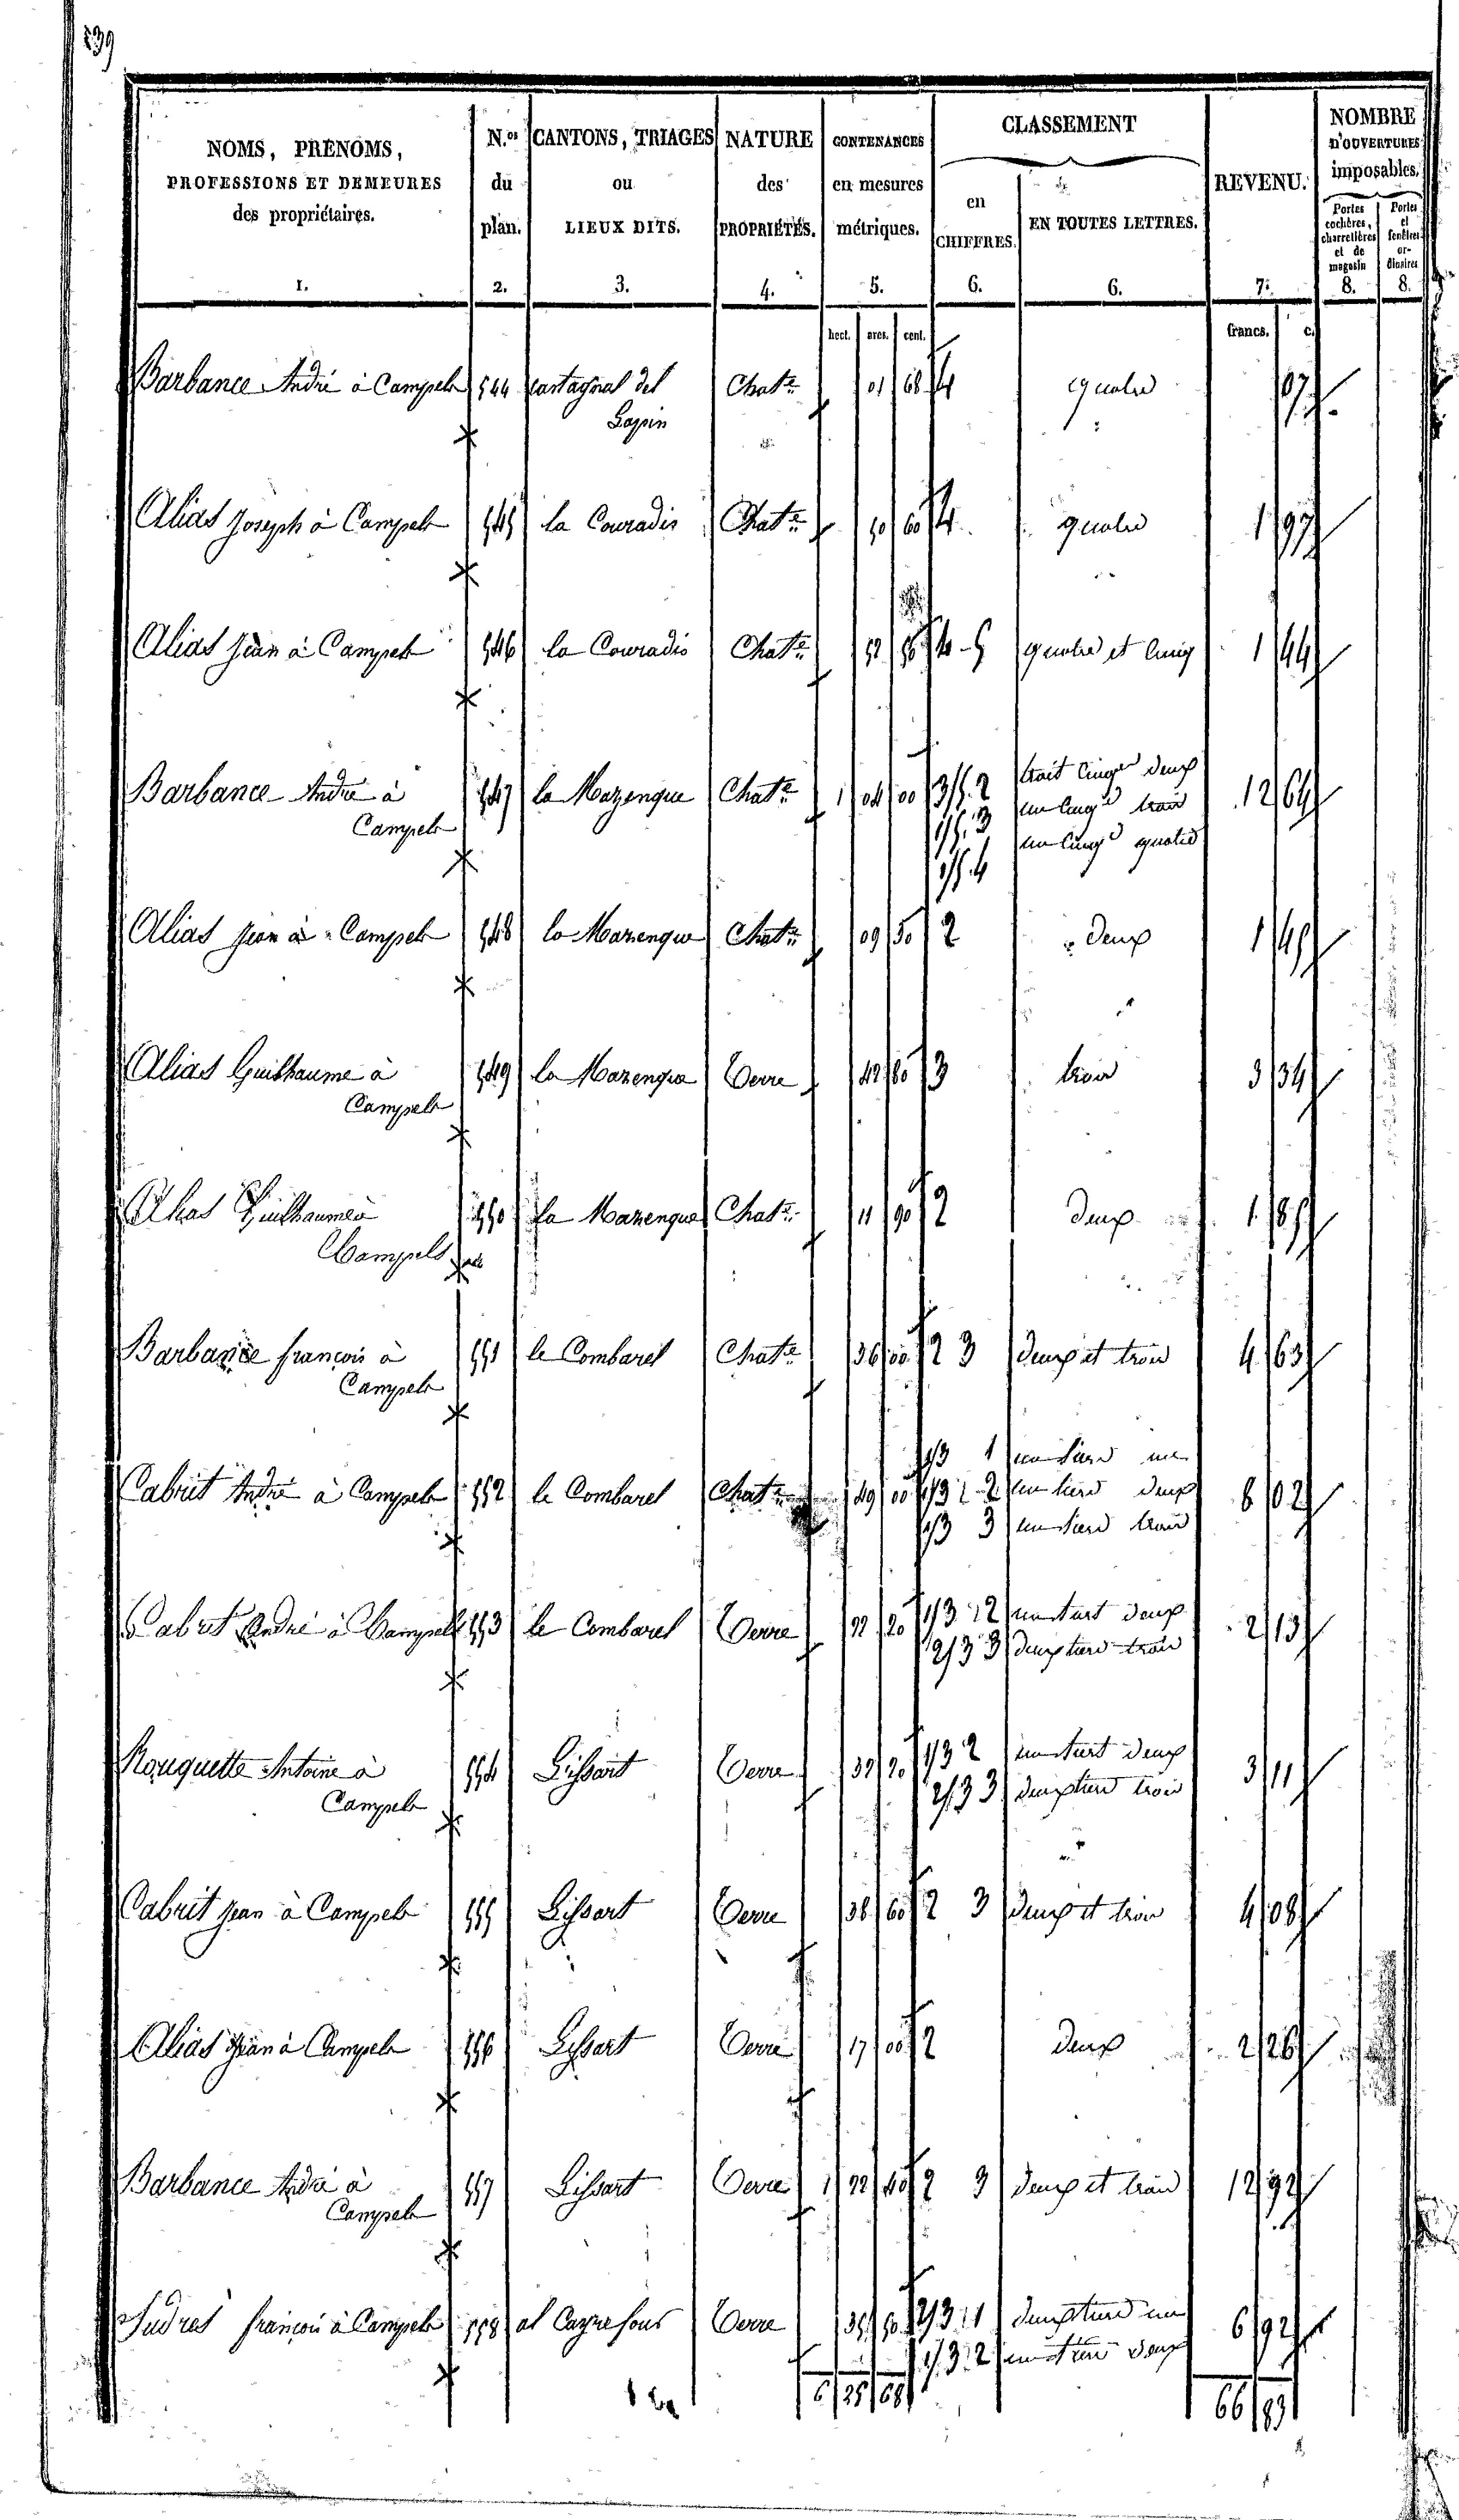 239
NOMS, PRÉNOMS, PROFESSIONS ET DEMEURES des propriétaires. 1.
N.os du plan. 2.
CANTONS, TRIAGES ou LIEUX DITS. 3.
NATURE des PROPRIÉTÉS. 4.
CONTENANCES en mesures métriques. 5.
CLASSEMENT
en CHIFFRES. 6.
EN TOUTES LETTRES. 6.
REVENU. 7.
NOMBRE D'OUVERTURES imposables.
Portes cochères, charretières et de magasin 8.
Portes et fenêtres ordinaires 8.
hect. ares. cent. francs. c.
Barbance André à Campels 544 cartagnal del Chatre 01 68 4 quatre 07
Lapin
Alias Joseph à Campels 545 la Couradis Chatre 60 4 quatre 1 97
Alias Jean à Campels 546 la Couradis Chatre 52 4-5 quatre et cinq 1 44
Barbance André à 547 la Mazenque Chatre 1 04 00 3/5 2 trois cinq.e deux 12 64
Campels 1/5 3 un cinq.e trois
1/5 4 un cinq.e quatre
Alias Jean à Campels 548 la Mazenque Chatre 09 50 2 deux 1 49
Alias Guilhaume à 549 la Mazenque Terre 42 80 3 trois 3 34
Campels
Alias Guilhaume à 550 la Mazenque Chatre 11 90 2 deux 1 85
Campels
Barbance françois à 551 le Combarel Chatre 36 00 2 3 deux et trois 4 63
Campels
1/3 1 un tiers un
Cabrit André à Campels 552 le Combarel Chatre 49 00 1/3 2 un tiers deux 8 02
1/3 3 un tiers trois
Cabrit André à Campels 553 le Combarel Terre 22 20 1/3 2 un tiers deux 2 13
2/3 3 deux tiers trois
Rouquette Antoine à 554 Lissart Terre 32 20 1/3 2 un tiers deux 3 11
Campels 2/3 3 deux tiers trois
Cabrit Jean à Campels 555 Lissart Terre 38 60 2 3 deux et trois 4 08
Alias Jean à Campels 556 Lissart Terre 17 00 2 deux 2 26
Barbance André à 557 Lissart Terre 1 22 40 2 3 deux et trois 12 92
Campels
Sudres françois à Campels 558 al Cayrefous Terre 35 50 2/3 1 deux tiers un 6 92
1/3 2 un tiers deux
6 25 68 66 83